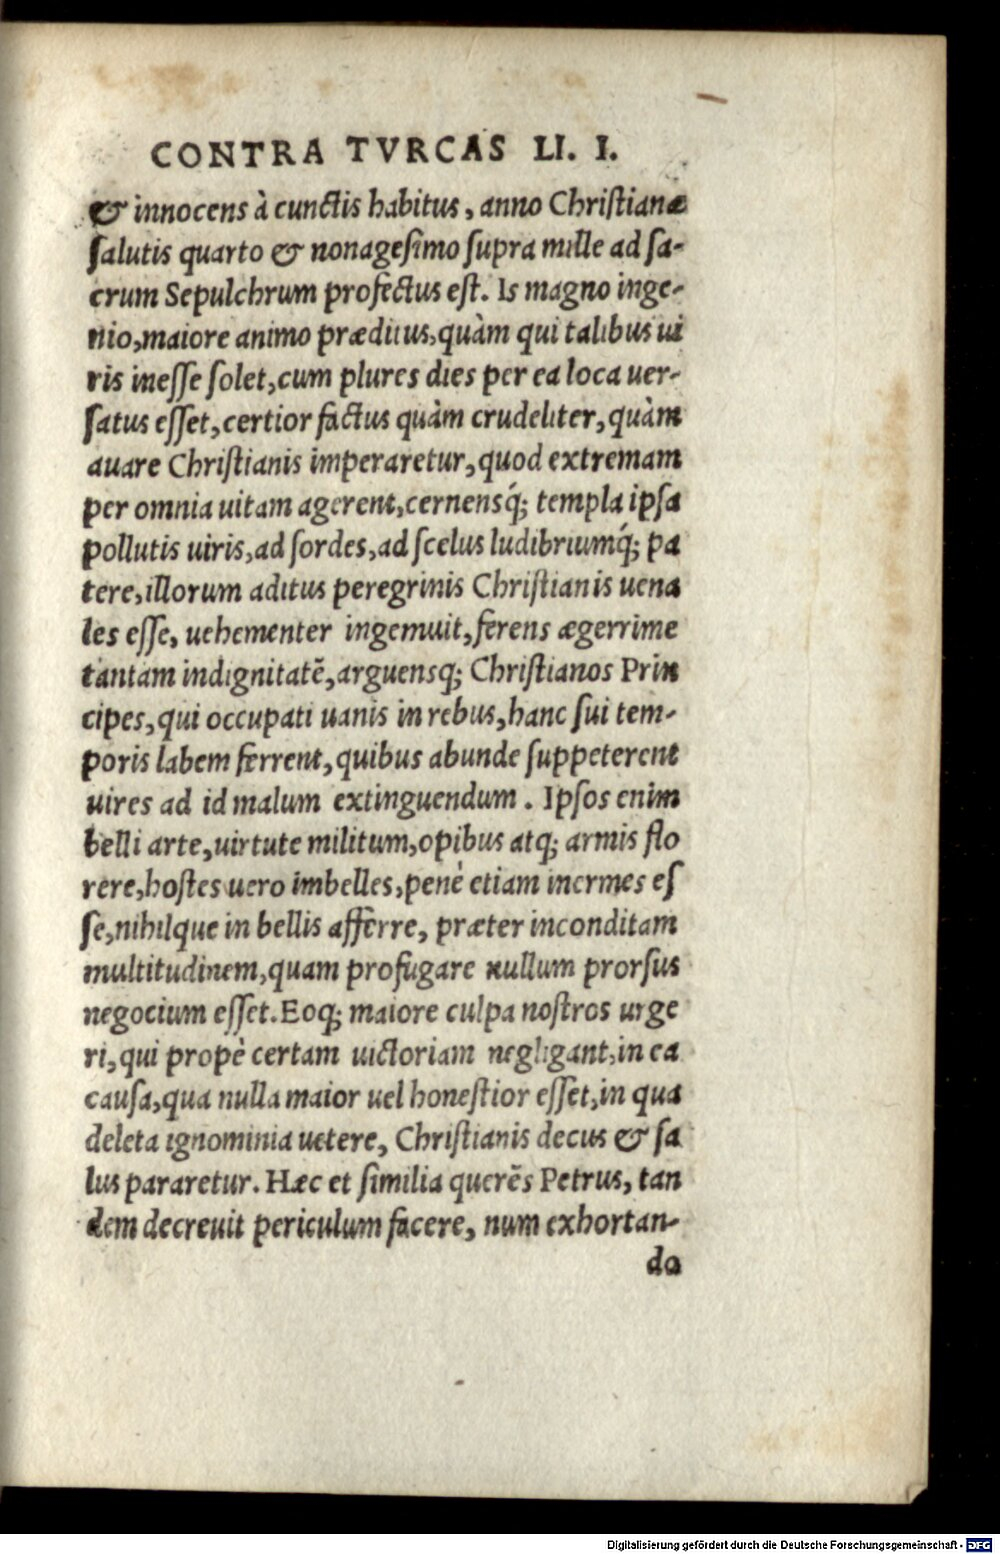 CONTRA TVRCAS LI. I.
& innocens à cunctis habitus, anno Christianæ
salutis quarto & nonagesimo supra mille ad sa-
crum Sepulchrum profectus est. Is magno inge-
nio, maiore animo præditus, quàm qui talibus ui
ris inesse solet, cum plures dies per ea loca uer-
satus esset, certior factus quàm crudeliter, quàm
auare Christianis imperaretur, quod extremam
per omnia uitam agerent, cernensq́; templa ipsa
pollutis uiris, ad sordes, ad scelus ludibriumq́; pa
tere, illorum aditus peregrinis Christianis uena
les esse, uehementer ingemuit, ferens ægerrime
tantam indignitatē, arguensq; Christianos Prin
cipes, qui occupati uanis in rebus, hanc sui tem-
poris labem ferrent, quibus abunde suppeterent
uires ad id malum extinguendum. Ipsos enim
belli arte, uirtute militum, opibus atq; armis flo
rere, hostes uero imbelles, penè etiam inermes es
se, nihilque in bellis afferre, præter inconditam
multitudinem, quam profugare nullum prorsus
negocium esset. Eoq; maiore culpa nostros urge
ri, qui propè certam uictoriam negligant, in ea
causa, qua nulla maior uel honestior esset, in qua
deleta ignominia uetere, Christianis decus & sa
lus pararetur. Hæc et similia querēs Petrus, tan
dem decreuit periculum facere, num exhortan-
do
Digitalisierung gefördert durch die Deutsche Forschungsgemeinschaft - DFG